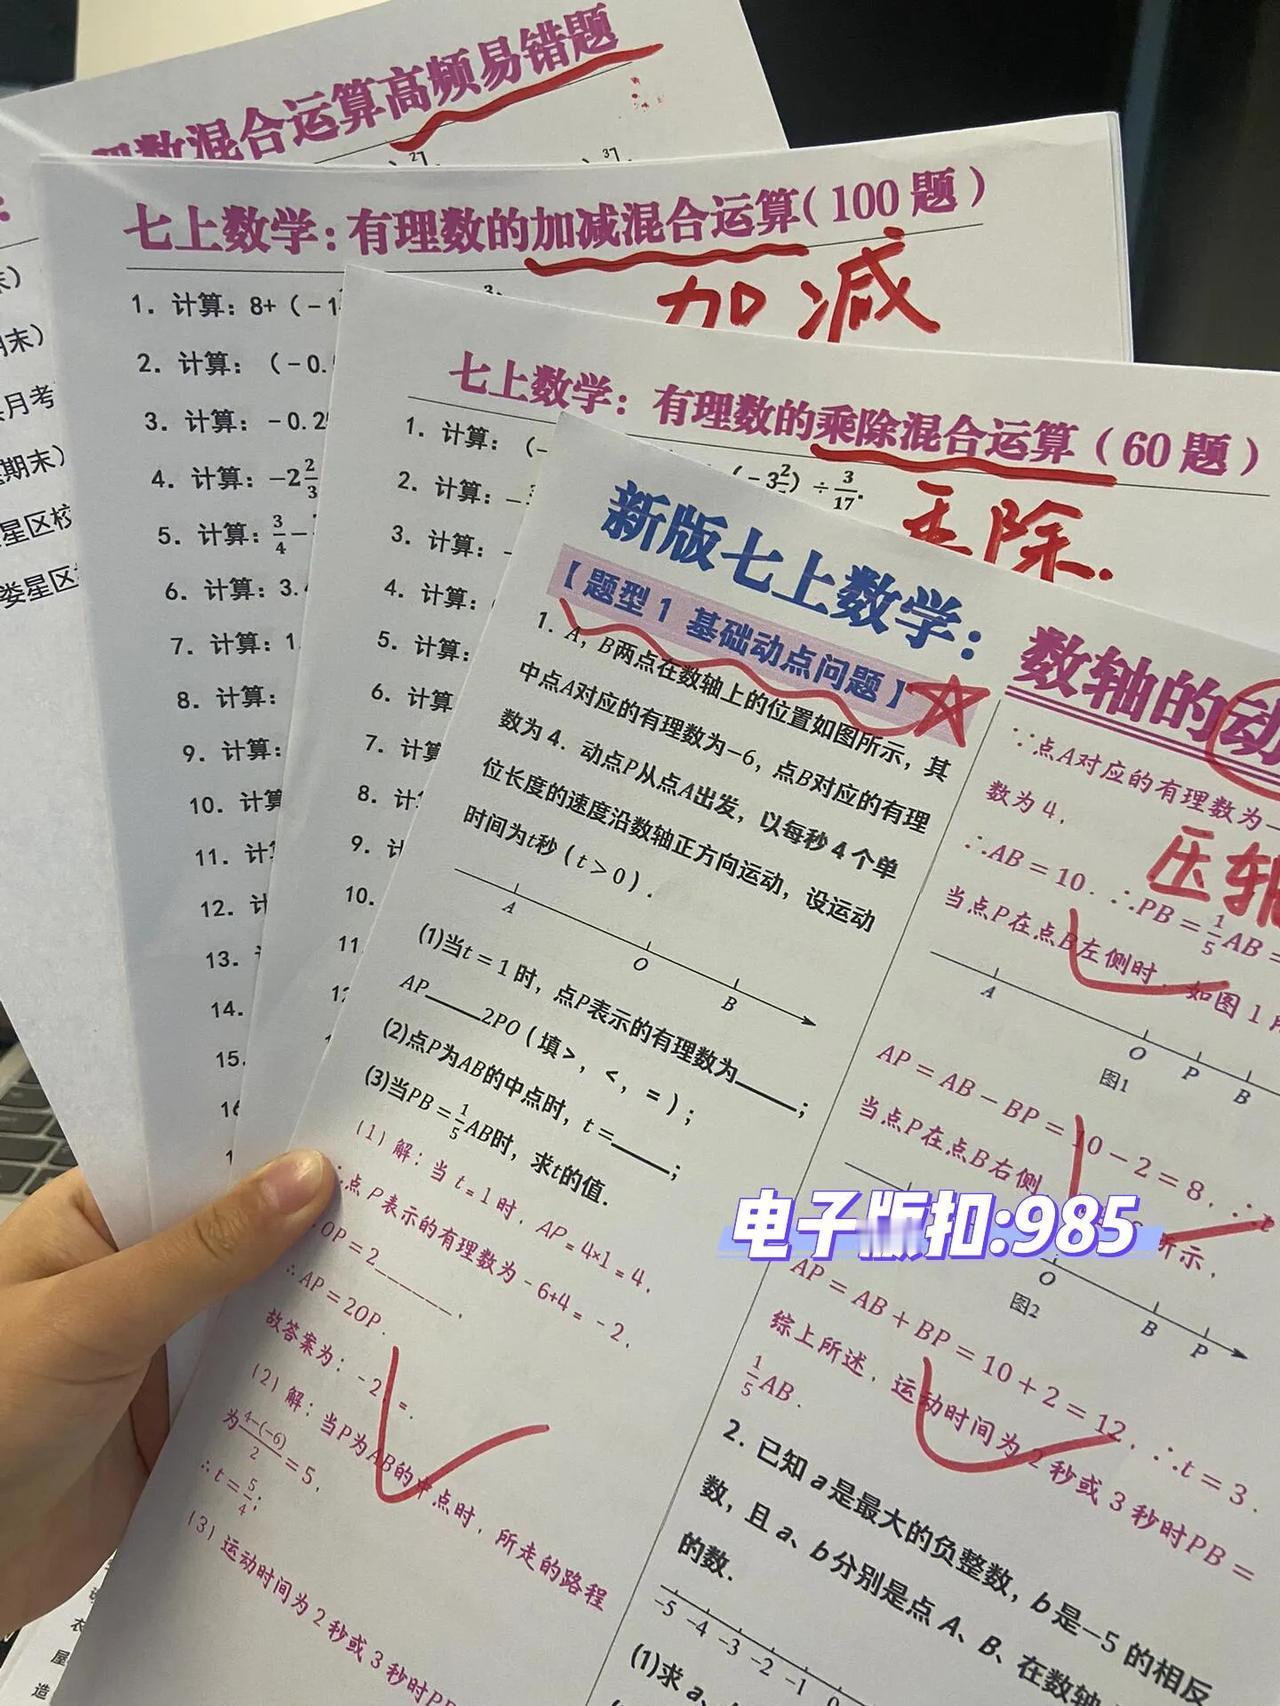 数混合运算高频易错题
七上数学：有理数的加减混合运算（100题）
加减
1．计算：8+（-1
2．计算：（-0.
3．计算：-0.2
4．计算：-2 2/3
5．计算：3/4-
6．计算：3.
7．计算：1
8．计算：
9．计算：
10．计算
11．计
12．计
13．
14．
15．
16
期末）
月考
期末）
星区校
娄星区
七上数学：有理数的乘除混合运算（60题）
乘除.
1．计算：（-
（-3 2/ ）÷3/17．
2．计算：-
3．计算：-
4．计算：
5．计算：
6．计算
7．计算
8．计
9．计
10．
11
新版七上数学：数轴的动
【题型1 基础动点问题】
1．A，B两点在数轴上的位置如图所示，其
中点A对应的有理数为-6，点B对应的有理
数为4．动点P从点A出发，以每秒4个单
位长度的速度沿数轴正方向运动，设运动
时间为t秒（t＞0）．
A O B
(1)当t=1时，点P表示的有理数为____；
AP____2PO（填>，<，=）；
(2)点P为AB的中点时，t=____；
(3)当PB=1/5AB时，求t的值．
（1）解：当t=1时，AP=4×1=4，
∴点P表示的有理数为-6+4=-2，
OP=2______，
∴AP=2OP．
故答案为：-2，=．
（2）解：当P为AB的中点时，所走的路程
为4-(-6)/2=5，
∴t=5/4；
（3）运动时间为2秒或3秒时P
∵点A对应的有理数为-
数为4，
压轴
∴AB=10．∴PB=1/5AB=
当点P在点B左侧时，如图1
A O P B
图1
AP=AB-BP=10-2=8，∴t
当点P在点B右侧
所示，
O B P
图2
AP=AB+BP=10+2=12，∴t=3．
综上所述，运动时间为2秒或3秒时PB=
1/5AB．
2．已知a是最大的负整数，b是-5的相反
数，且a、b分别是点A、B、在数轴
的数．
-5 -4 -3 -2 -1 0
(1)求a、
电子版扣:985
衣
屋
造